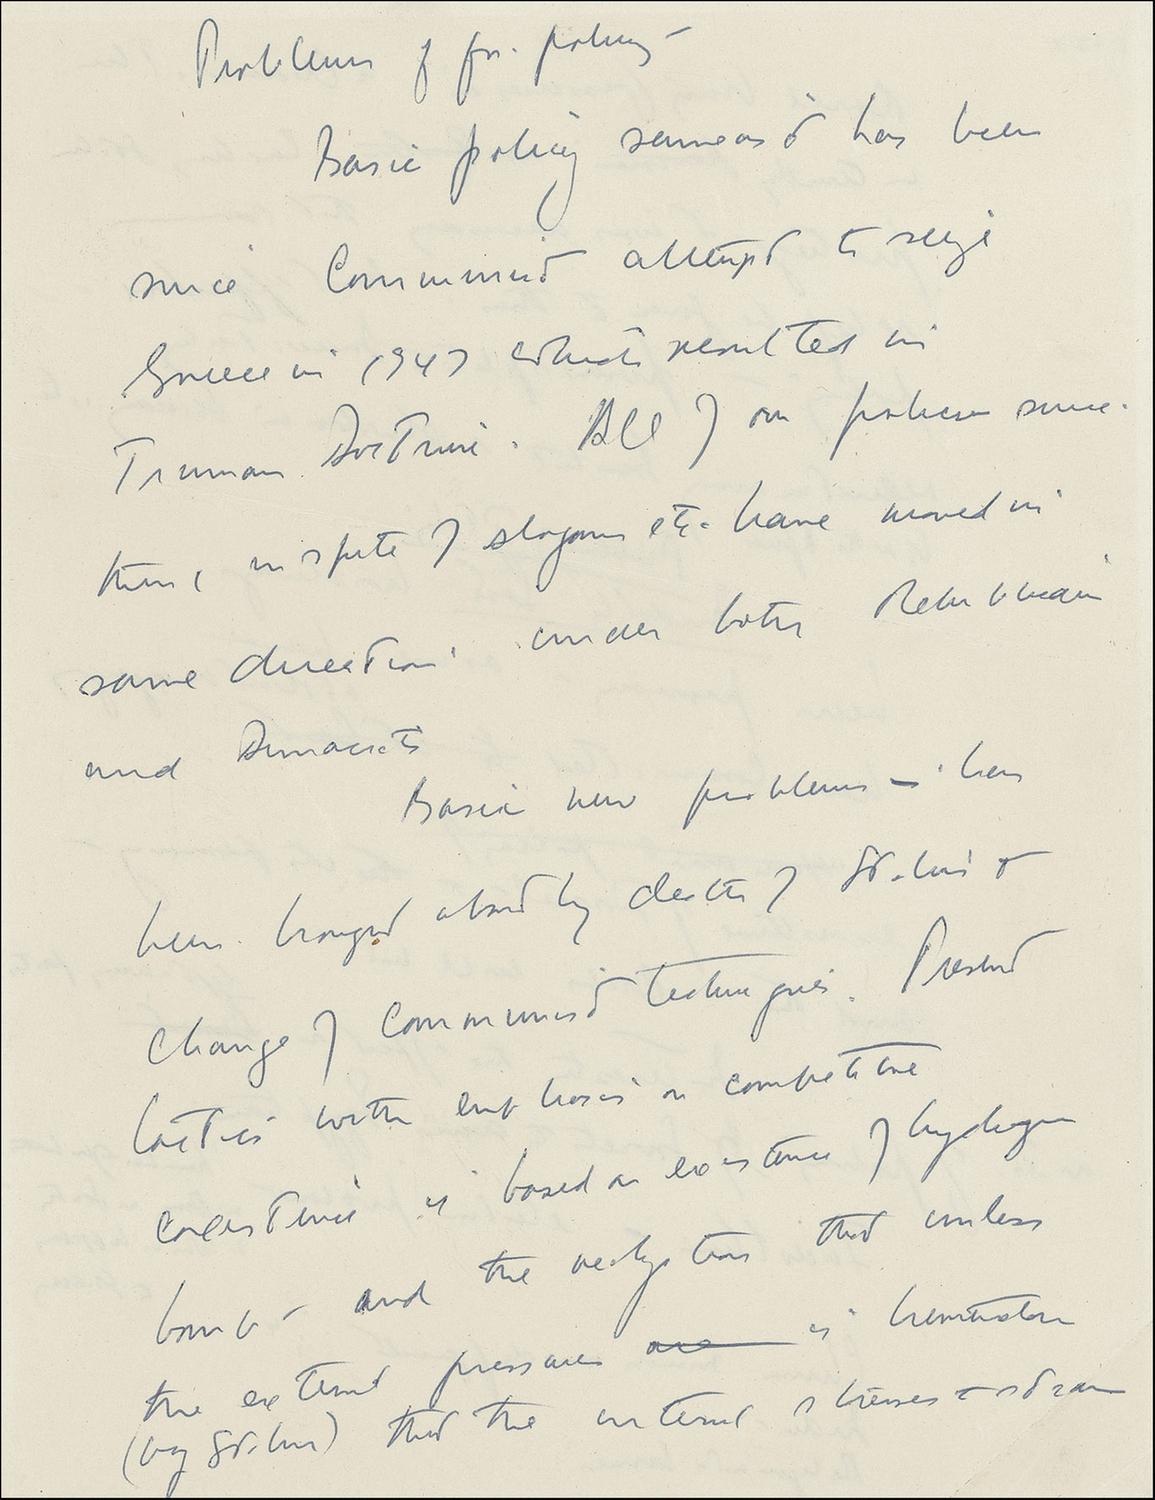 Problems of for. policy –
Basic policy same as it has been
since Communist attempt to seize
Greece in 1947 which resulted in
Truman Doctrine. All of our policies since
then, in spite of slogans etc. have moved in
same direction under both Republican
and Democrats
Basic new problems – has
been brought about by death of Stalin &
change of Communist techniques. Present
tactics with emphasis on competitive
coexistence is based on existence of hydrogen
bomb – and the realization that unless
the external pressures are is
(by Stalin) that the internal stresses & strain